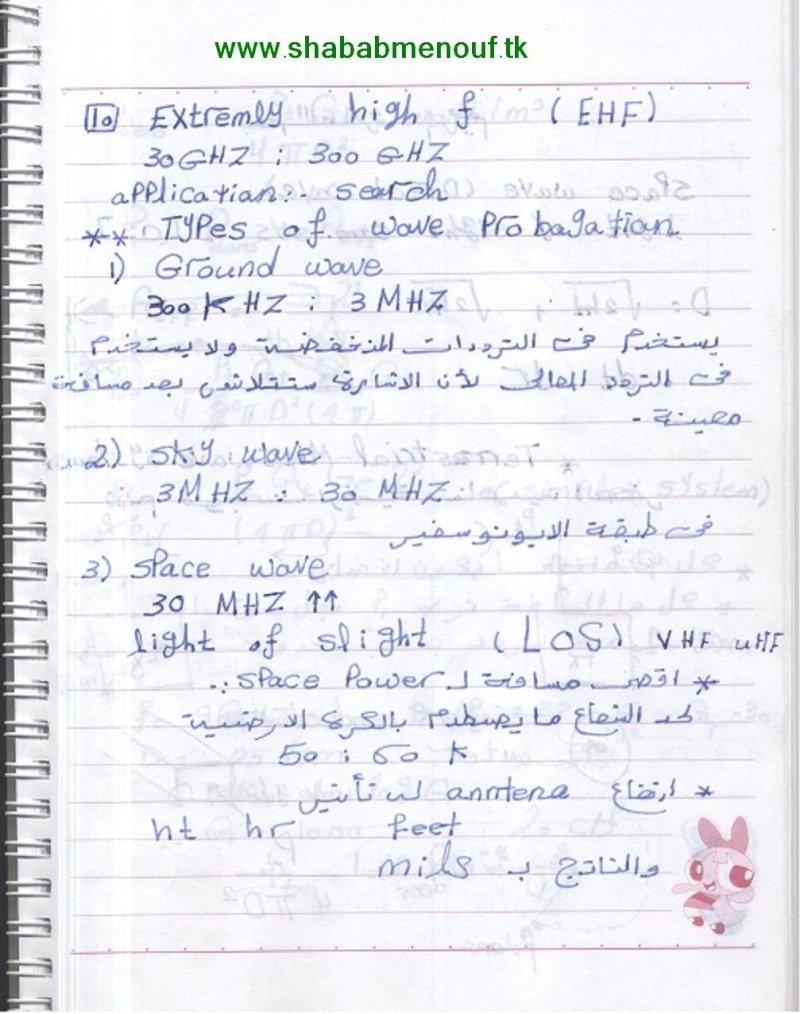 www.shababmenouf.tk
10 Extremly high f (EHF)
30GHZ : 300 GHZ
application:- search
** Types of wave Probagation
1) Ground wave
300 KHZ : 3 MHZ
يستخدم فى الترددات المنخفضة ولا يستخدم
فى التردد العالى لأن الاشارة ستتلاشى بعد مسافة
معينة -
2) sky wave
3MHZ : 30 MHZ
فى طبقة الايونوسفير
3) space wave
30 MHZ ↑↑
light of slight (LOS) VHF uHF
* اقصى مسافة لـ space Power :.
لحد الشعاع ما يصطدم بالكرة الارضية
50 : 60 K
* ارتفاع anntena له تأثير
ht hr feet
والناتج ب mils